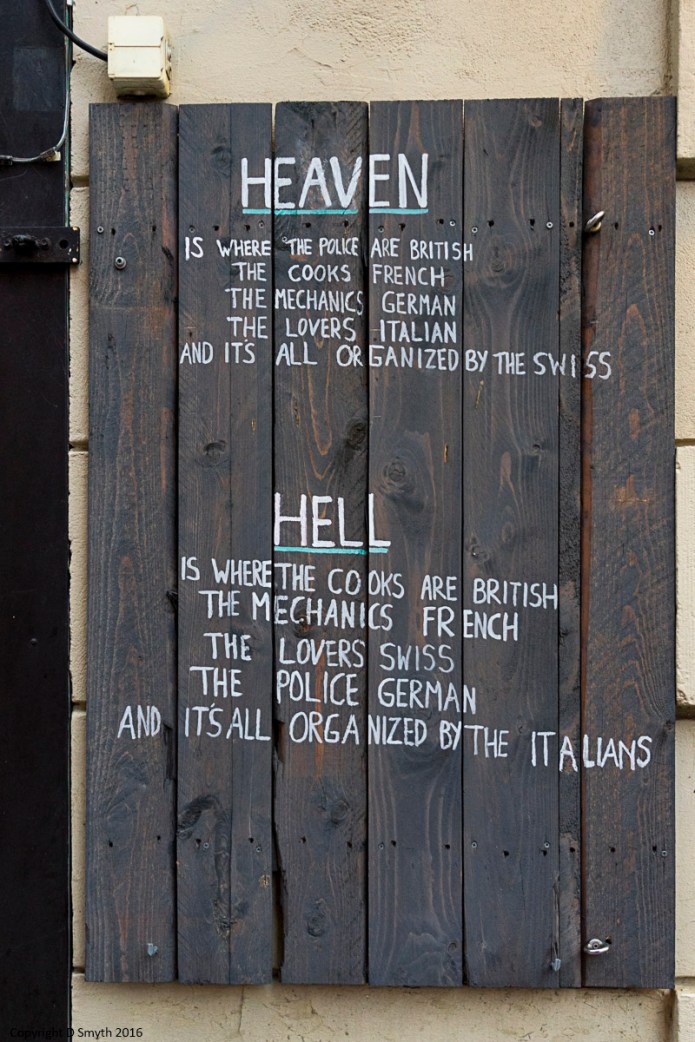 HEAVEN
IS WHERE THE POLICE ARE BRITISH
THE COOKS FRENCH
THE MECHANICS GERMAN
THE LOVERS ITALIAN
AND IT'S ALL ORGANIZED BY THE SWISS
HELL
IS WHERE THE COOKS ARE BRITISH
THE MECHANICS FRENCH
THE LOVERS SWISS
THE POLICE GERMAN
AND IT'S ALL ORGANIZED BY THE ITALIANS
Copyright D Smyth 2016